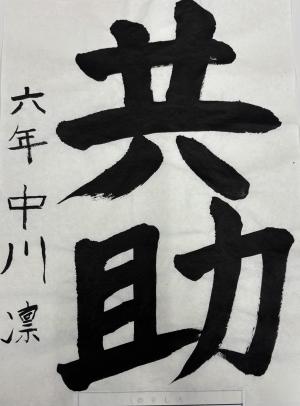 共助
六年 中川 凛